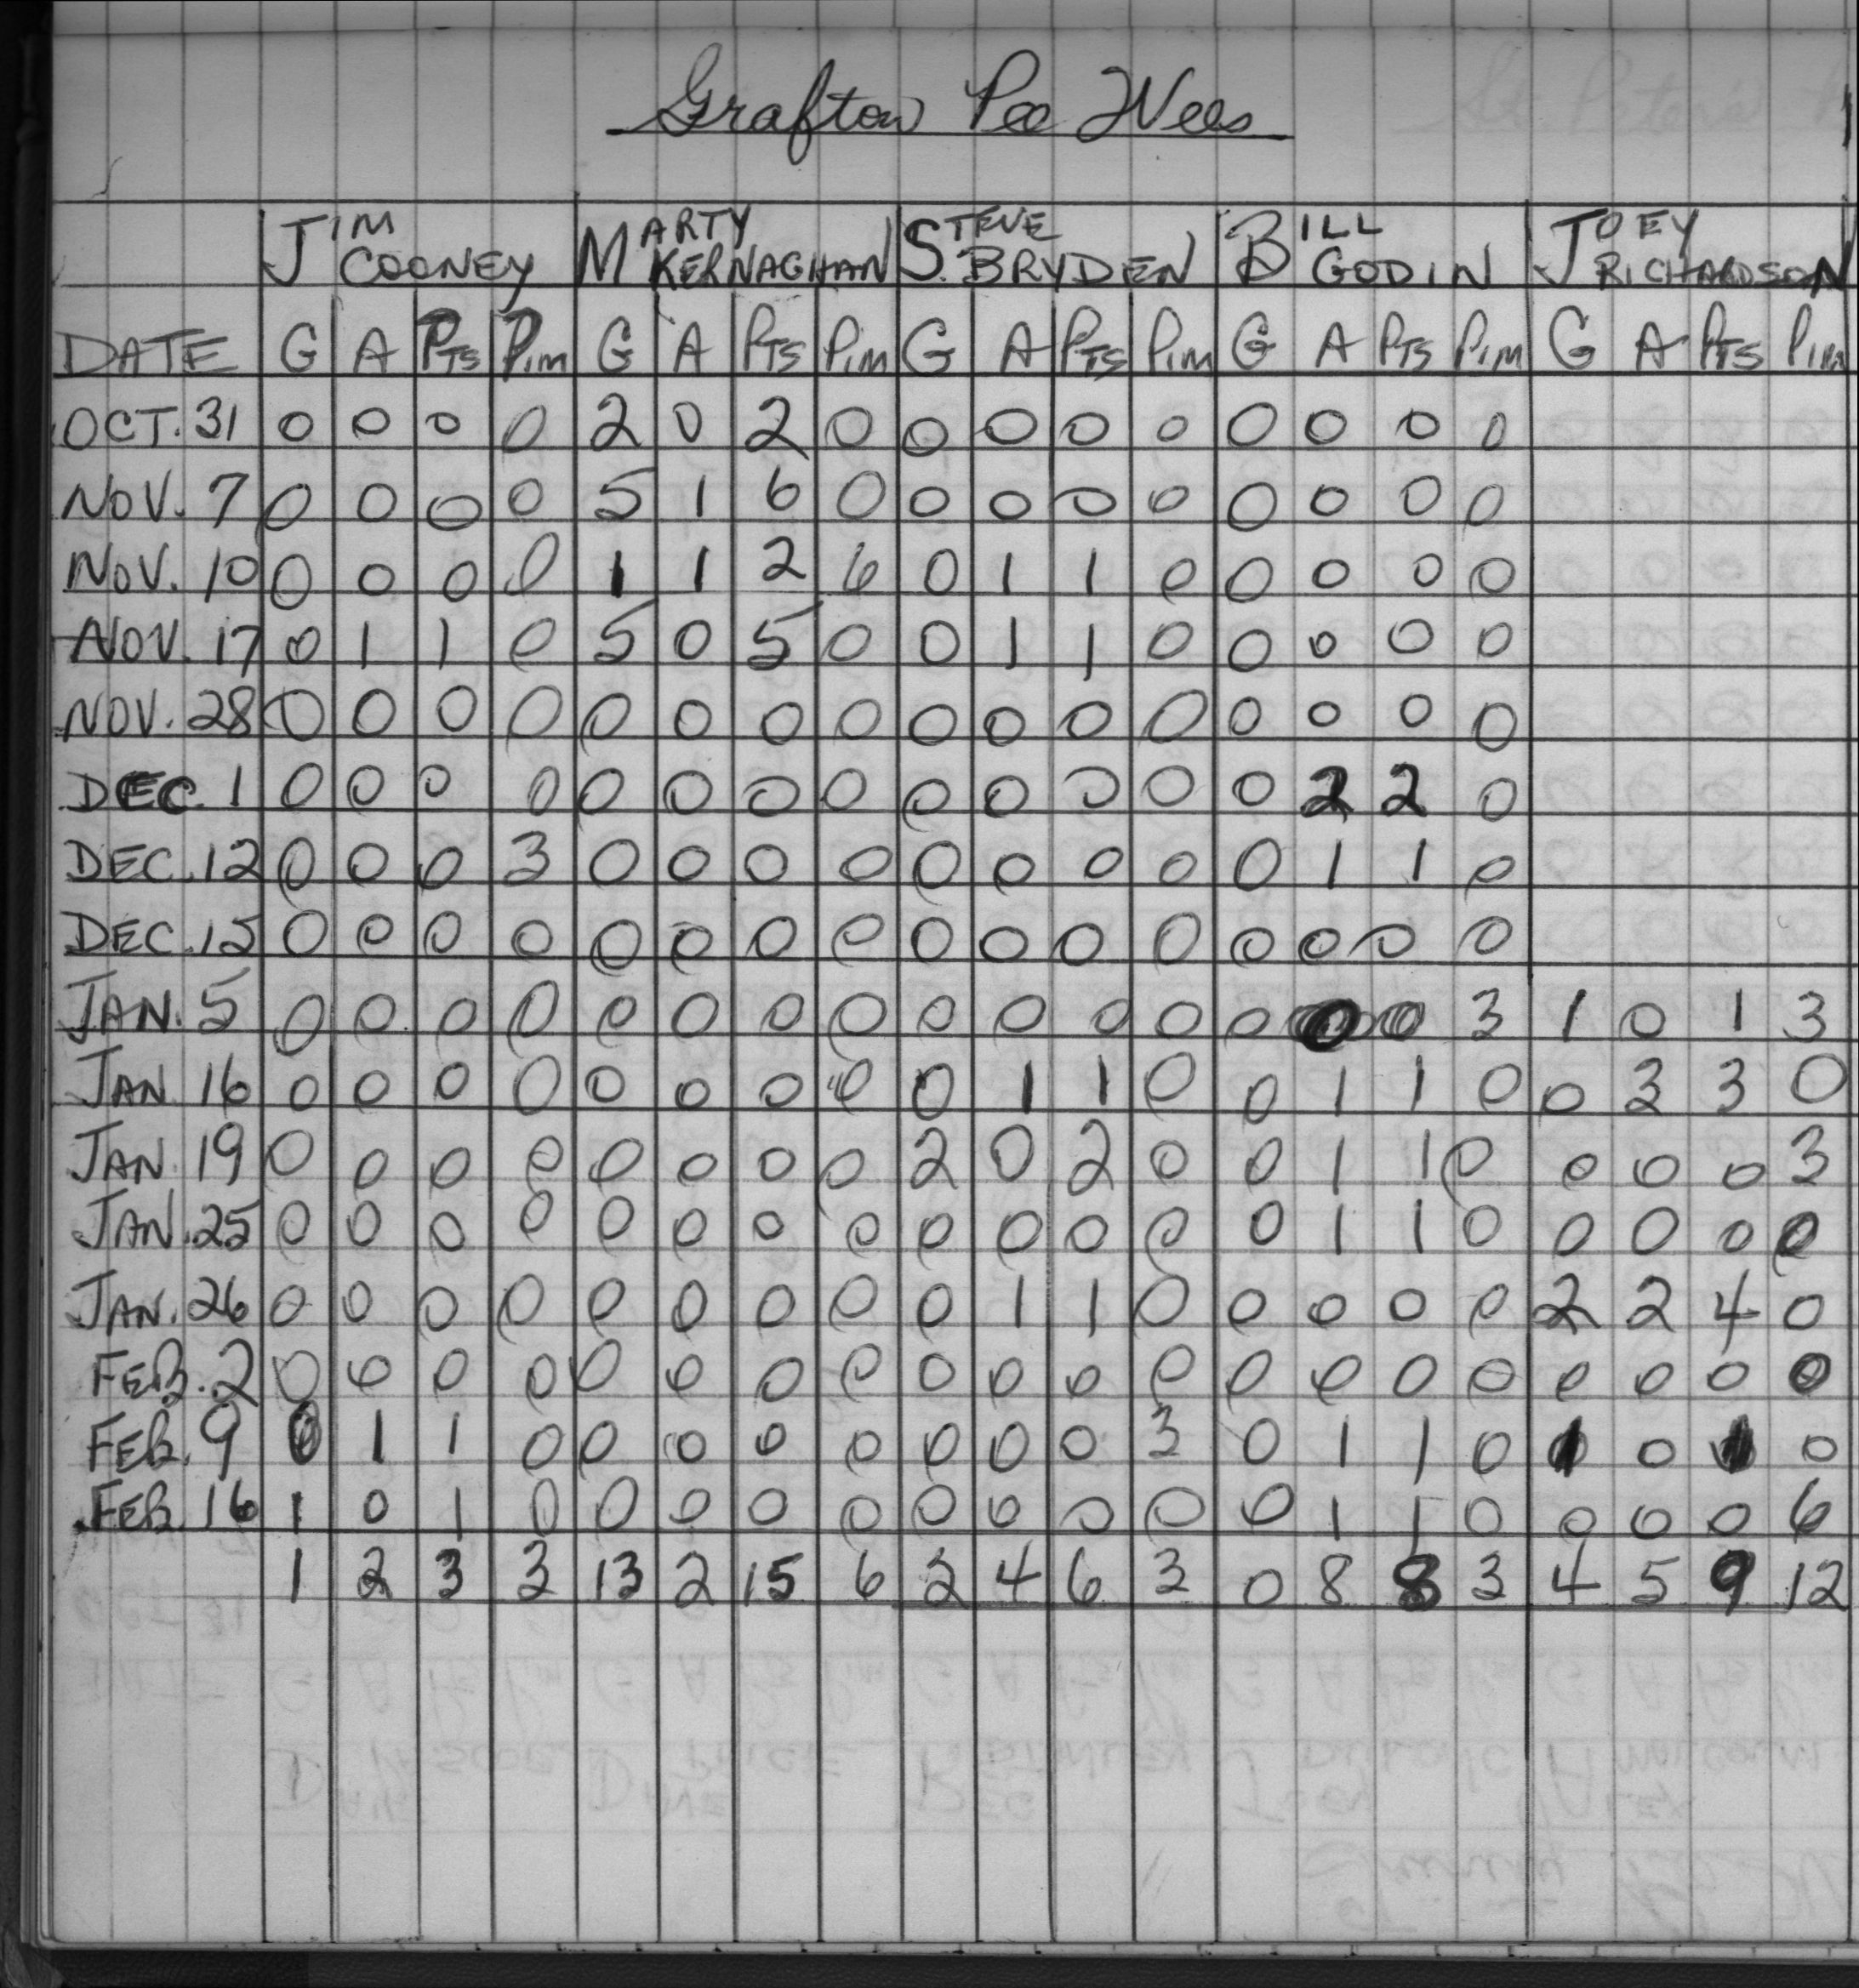 Grafton Pee Wees
JIM COONEY MARTY KERNAGHAN STEVE BRYDEN BILL GODIN JOEY RICHARDSON
DATE G A PTS PIM G A PTS PIM G A PTS PIM G A PTS PIM G A PTS PIM
OCT. 31 0 0 0 0 2 0 2 0 0 0 0 0 0 0 0 0
NOV. 7 0 0 0 0 5 1 6 0 0 0 0 0 0 0 0 0
NOV. 10 0 0 0 0 1 1 2 6 0 1 1 0 0 0 0 0
NOV. 17 0 1 1 0 5 0 5 0 0 1 1 0 0 0 0 0
NOV. 28 0 0 0 0 0 0 0 0 0 0 0 0 0 0 0 0
DEC. 1 0 0 0 0 0 0 0 0 0 0 0 0 0 2 2 0
DEC. 12 0 0 0 3 0 0 0 0 0 0 0 0 0 1 1 0
DEC. 15 0 0 0 0 0 0 0 0 0 0 0 0 0 0 0 0
JAN. 5 0 0 0 0 0 0 0 0 0 0 0 0 0 0 0 3 1 0 1 3
JAN. 16 0 0 0 0 0 0 0 0 0 1 1 0 0 1 1 0 0 3 3 0
JAN. 19 0 0 0 0 0 0 0 0 2 0 2 0 0 1 1 0 0 0 0 3
JAN. 25 0 0 0 0 0 0 0 0 0 0 0 0 0 1 1 0 0 0 0 0
JAN. 26 0 0 0 0 0 0 0 0 0 1 1 0 0 0 0 0 2 2 4 0
FEB. 2 0 0 0 0 0 0 0 0 0 0 0 0 0 0 0 0 0 0 0 0
FEB. 9 0 1 1 0 0 0 0 0 0 0 0 3 0 1 1 0 1 0 1 0
FEB. 16 1 0 1 0 0 0 0 0 0 0 0 0 0 1 1 0 0 0 0 6
1 2 3 3 13 2 15 6 2 4 6 3 0 8 8 3 4 5 9 12